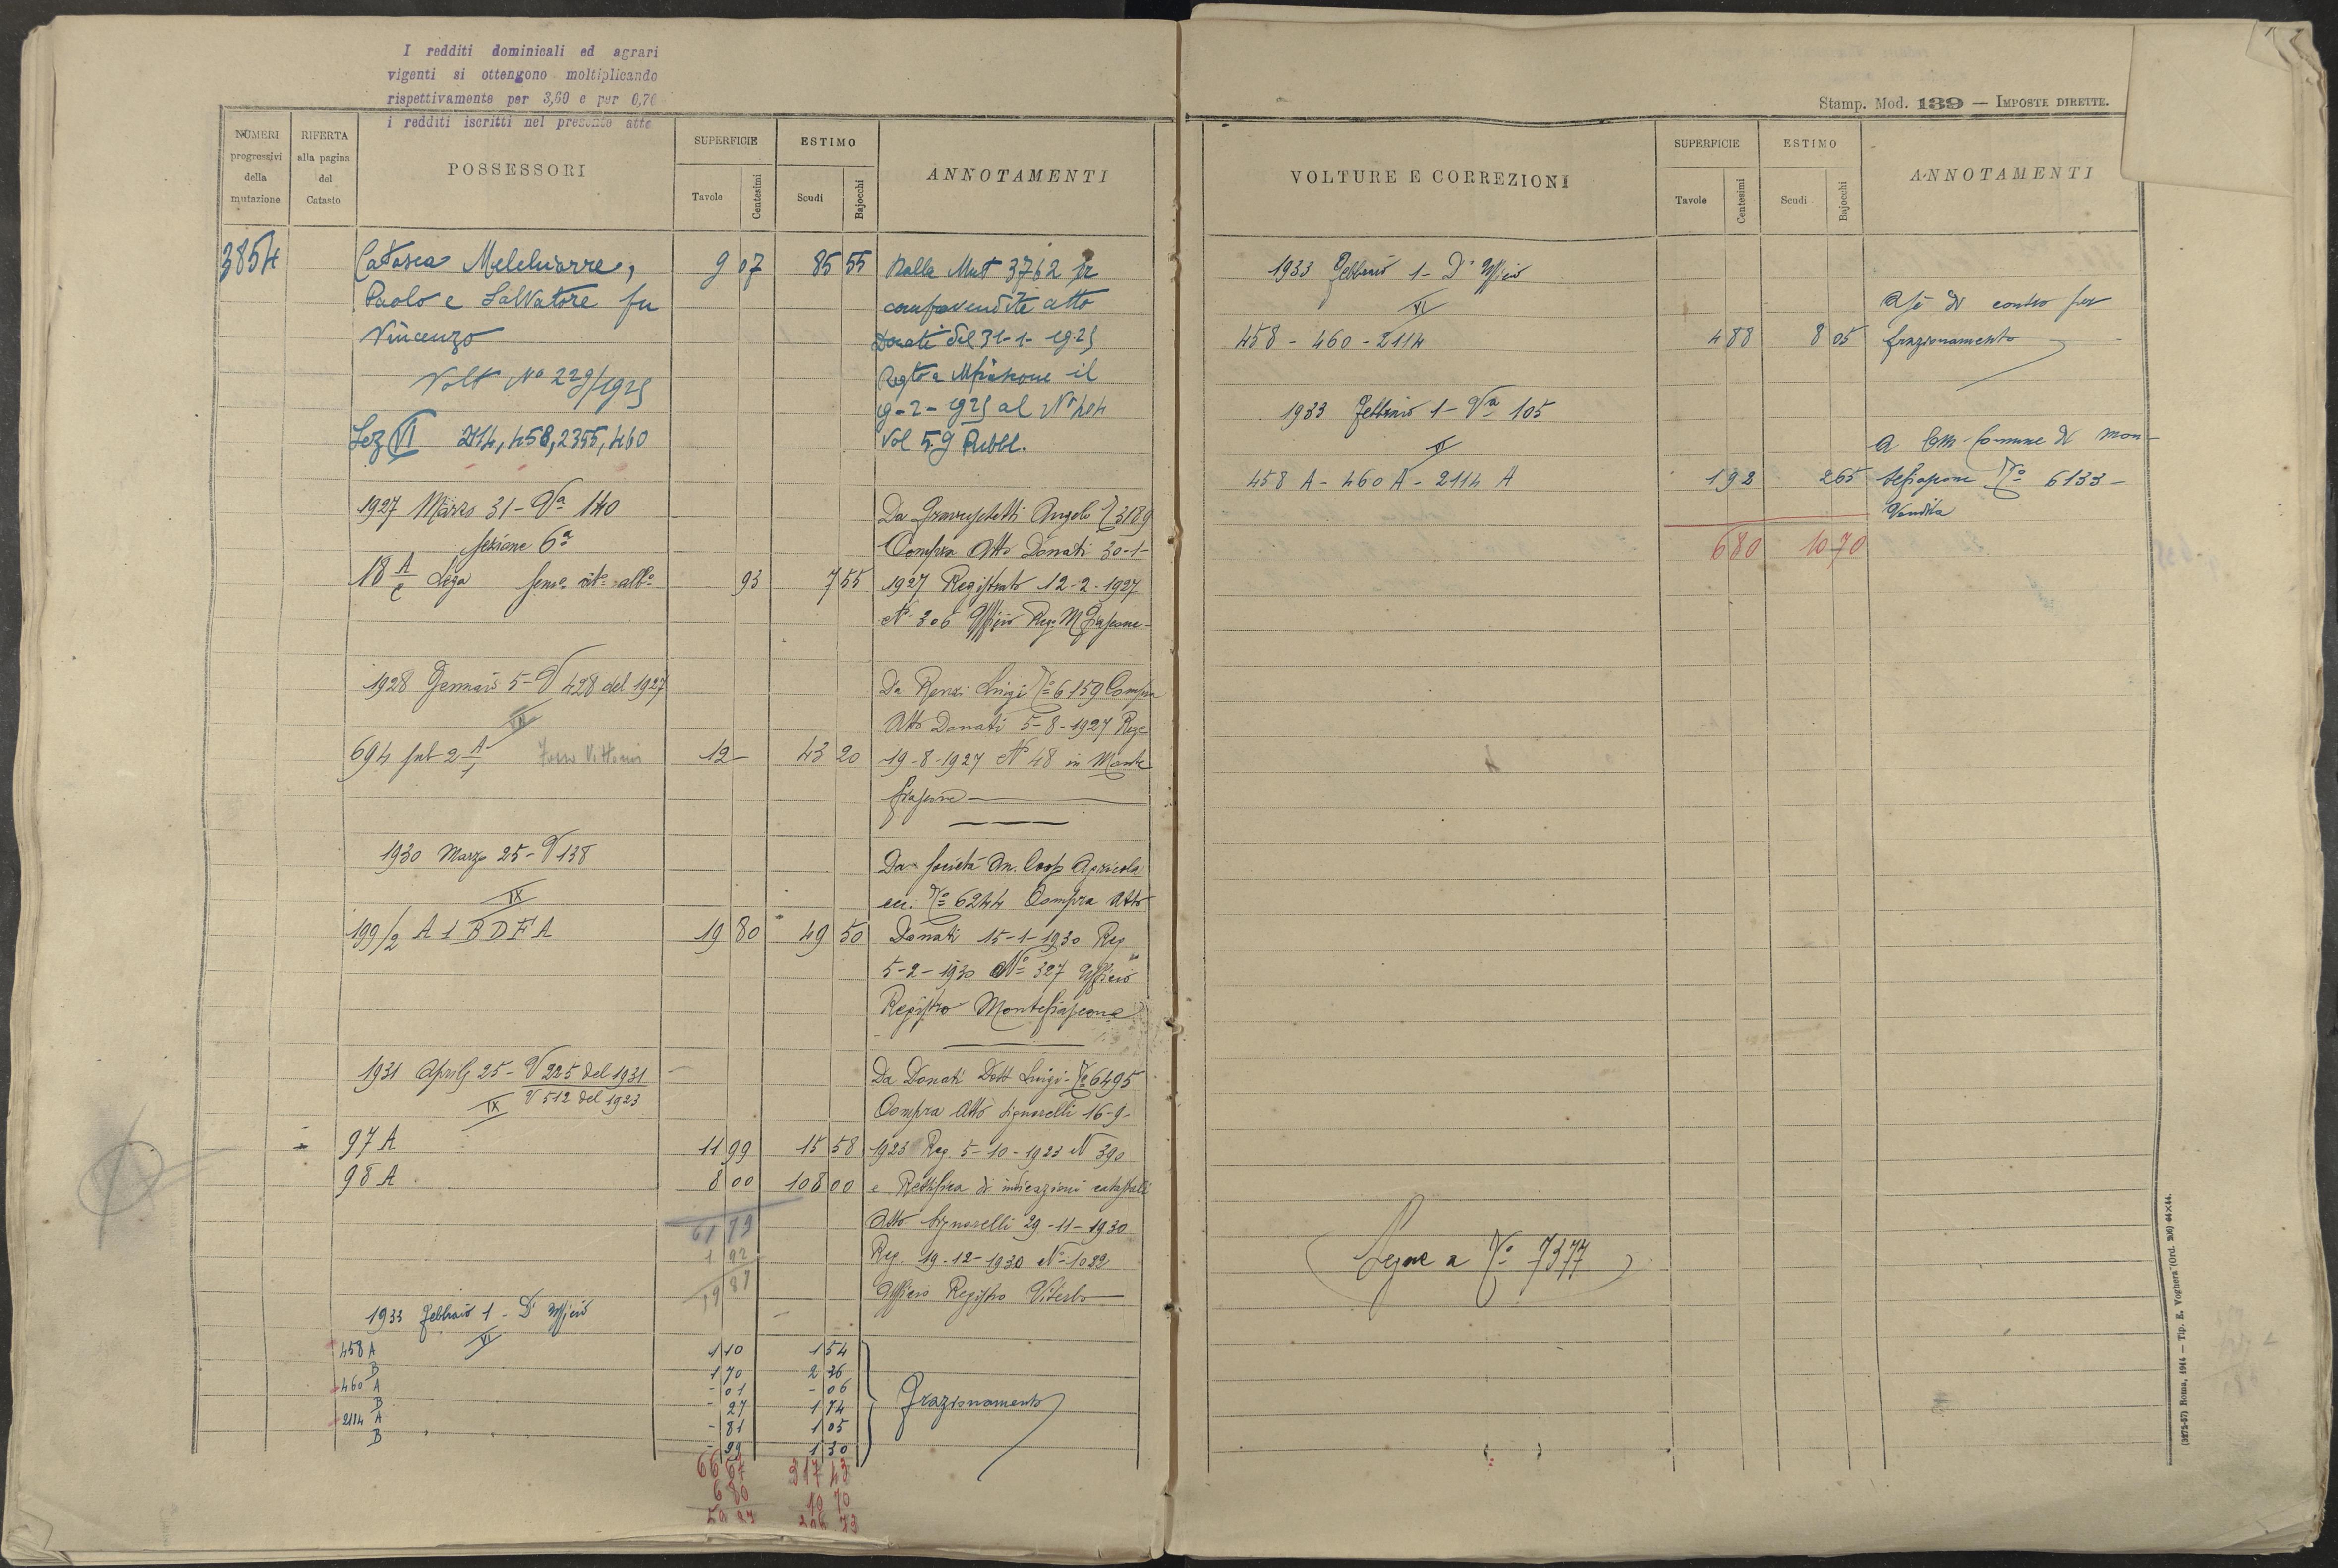 I redditi dominicali ed agrari
vigenti si ottengono moltiplicando
rispettivamente per 3,60 e per 0,70
i redditi iscritti nel presente atto
Stamp. Mod. 139 — IMPOSTE DIRETTE.
NUMERI progressivi della mutazione
RIFERTA alla pagina del Catasto
POSSESSORI
SUPERFICIE
Tavole
Centesimi
ESTIMO
Scudi
Bajocchi
ANNOTAMENTI
3854
Catasca Melchiorre, 9 07 85 55 Dalla Mut 3762 per
Paolo e Salvatore fu compravendita atto
Vincenzo Donati del 31-1-1925
Volt Nº 229/1925 Regto a Mfiascone il
9-2-1925 al Nº 404
Sez VI 2114, 458, 2355, 460 Vol 59 Pubbl.
1927 Marzo 31 - Va 140 Da Angelo 3189
sezione 6a Compra Atto Donati 30-1-
18 A/c Lega 93 7 55 1927 Registrato 12-2-1927
Nº 306 Ufficio Reg. MFiascone-
1928 Gennaio 5 - V 428 del 1927 Da Renzi Luigi Nº 6159 Compra
Atto Donati 5-8-1927 Reg
694 sub 2 A/1 12 - 43 20 19-8-1927 Nº 48 in Monte
fiascone
1930 Marzo 25 - V 138 Da Società An. Coop Agricola
IX ecc. Nº 6244 Compra Atto
199/2 A 1 B D F A 19 80 49 50 Donati 15-1-1930 Reg
5-2-1930 Nº 327 Ufficio
Registro Montefiascone
1931 Aprile 25 - V 225 del 1931 Da Donati Dott Luigi - Nº 6495
IX V 512 del 1923 Compra Atto Signorelli 16-9-
97 A 11 99 15 58 1923 Reg. 5-10-1923 N 390
98 A 8 00 108 00 e Rettifica di indicazioni catastali
61 79 Atto Signorelli 29-11-1930
1 92 Reg. 19-12-1930 Nº 1082
87 Ufficio Registro Viterbo
1933 Febbraio 1 - D'Ufficio
VI
458 A 1 10 1 54
B 1 70 2 36
460 A - 01 - 06
B - 27 1 74 Frazionamento
2114 A - 81 1 05
B - 99 1 30
66 67 317 43
6 80 10 70
VOLTURE E CORREZIONI
SUPERFICIE
Tavole
Centesimi
ESTIMO
Scudi
Bajocchi
ANNOTAMENTI
1933 Febbraio 1 - D'Ufficio
VI A sè di contro per
458 - 460 - 2114 4 88 8 05 frazionamento
1933 Febbraio 1 - Va 105
VI A Comune di Mon-
458 A - 460 A - 2114 A 1 92 2 65 tefiascone Nº 6133 -
Vendita
6 80 10 70
Segue a Nº 7377
(3272-57) Roma, 1914 — Tip. E. Voghera (Ord. 206) 64×44.